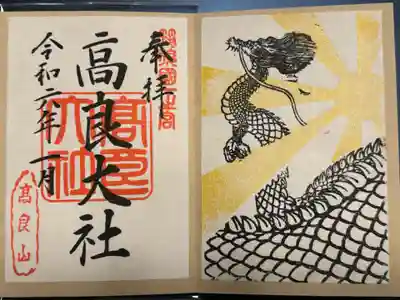 奉拝
高良大社
令和六年一月
高良大社
高良山